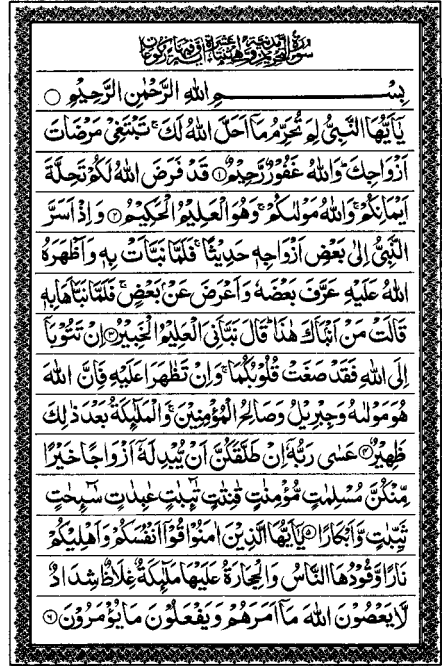 سورة التحريم مدنية وهي اثنتا عشرة آية وفيها ركوعان
بِسْمِ اللهِ الرَّحْمٰنِ الرَّحِيْمِ ○
يٰٓاَيُّهَا النَّبِيُّ لِمَ تُحَرِّمُ مَآ اَحَلَّ اللهُ لَكَ ۚ تَبْتَغِيْ مَرْضَاتَ
اَزْوَاجِكَ ؕ وَاللهُ غَفُوْرٌ رَّحِيْمٌ ① قَدْ فَرَضَ اللهُ لَكُمْ تَحِلَّةَ
اَيْمَانِكُمْ ۚ وَاللهُ مَوْلٰىكُمْ ۚ وَهُوَ الْعَلِيْمُ الْحَكِيْمُ ② وَاِذْ اَسَرَّ
النَّبِيُّ اِلٰى بَعْضِ اَزْوَاجِهٖ حَدِيْثًا ۚ فَلَمَّا نَبَّاَتْ بِهٖ وَاَظْهَرَهُ
اللهُ عَلَيْهِ عَرَّفَ بَعْضَهٗ وَاَعْرَضَ عَنْۢ بَعْضٍ ۚ فَلَمَّا نَبَّاَهَا بِهٖ
قَالَتْ مَنْ اَنْۢبَاَكَ هٰذَا ؕ قَالَ نَبَّاَنِيَ الْعَلِيْمُ الْخَبِيْرُ ③ اِنْ تَتُوْبَآ
اِلَى اللهِ فَقَدْ صَغَتْ قُلُوْبُكُمَا ۚ وَاِنْ تَظٰهَرَا عَلَيْهِ فَاِنَّ اللهَ
هُوَ مَوْلٰىهُ وَجِبْرِيْلُ وَصَالِحُ الْمُؤْمِنِيْنَ ۚ وَالْمَلٰٓئِكَةُ بَعْدَ ذٰلِكَ
ظَهِيْرٌ ④ عَسٰى رَبُّهٗٓ اِنْ طَلَّقَكُنَّ اَنْ يُّبْدِلَهٗٓ اَزْوَاجًا خَيْرًا
مِّنْكُنَّ مُسْلِمٰتٍ مُّؤْمِنٰتٍ قٰنِتٰتٍ تٰٓئِبٰتٍ عٰبِدٰتٍ سٰٓئِحٰتٍ
ثَيِّبٰتٍ وَّاَبْكَارًا ⑤ يٰٓاَيُّهَا الَّذِيْنَ اٰمَنُوْا قُوْٓا اَنْفُسَكُمْ وَاَهْلِيْكُمْ
نَارًا وَّقُوْدُهَا النَّاسُ وَالْحِجَارَةُ عَلَيْهَا مَلٰٓئِكَةٌ غِلَاظٌ شِدَادٌ
لَّا يَعْصُوْنَ اللهَ مَآ اَمَرَهُمْ وَيَفْعَلُوْنَ مَا يُؤْمَرُوْنَ ⑥